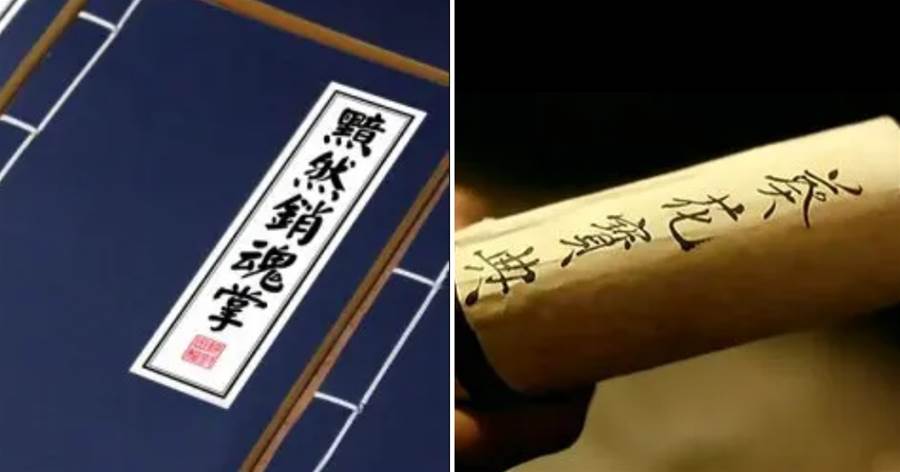 黯然銷魂掌
葵花寶典